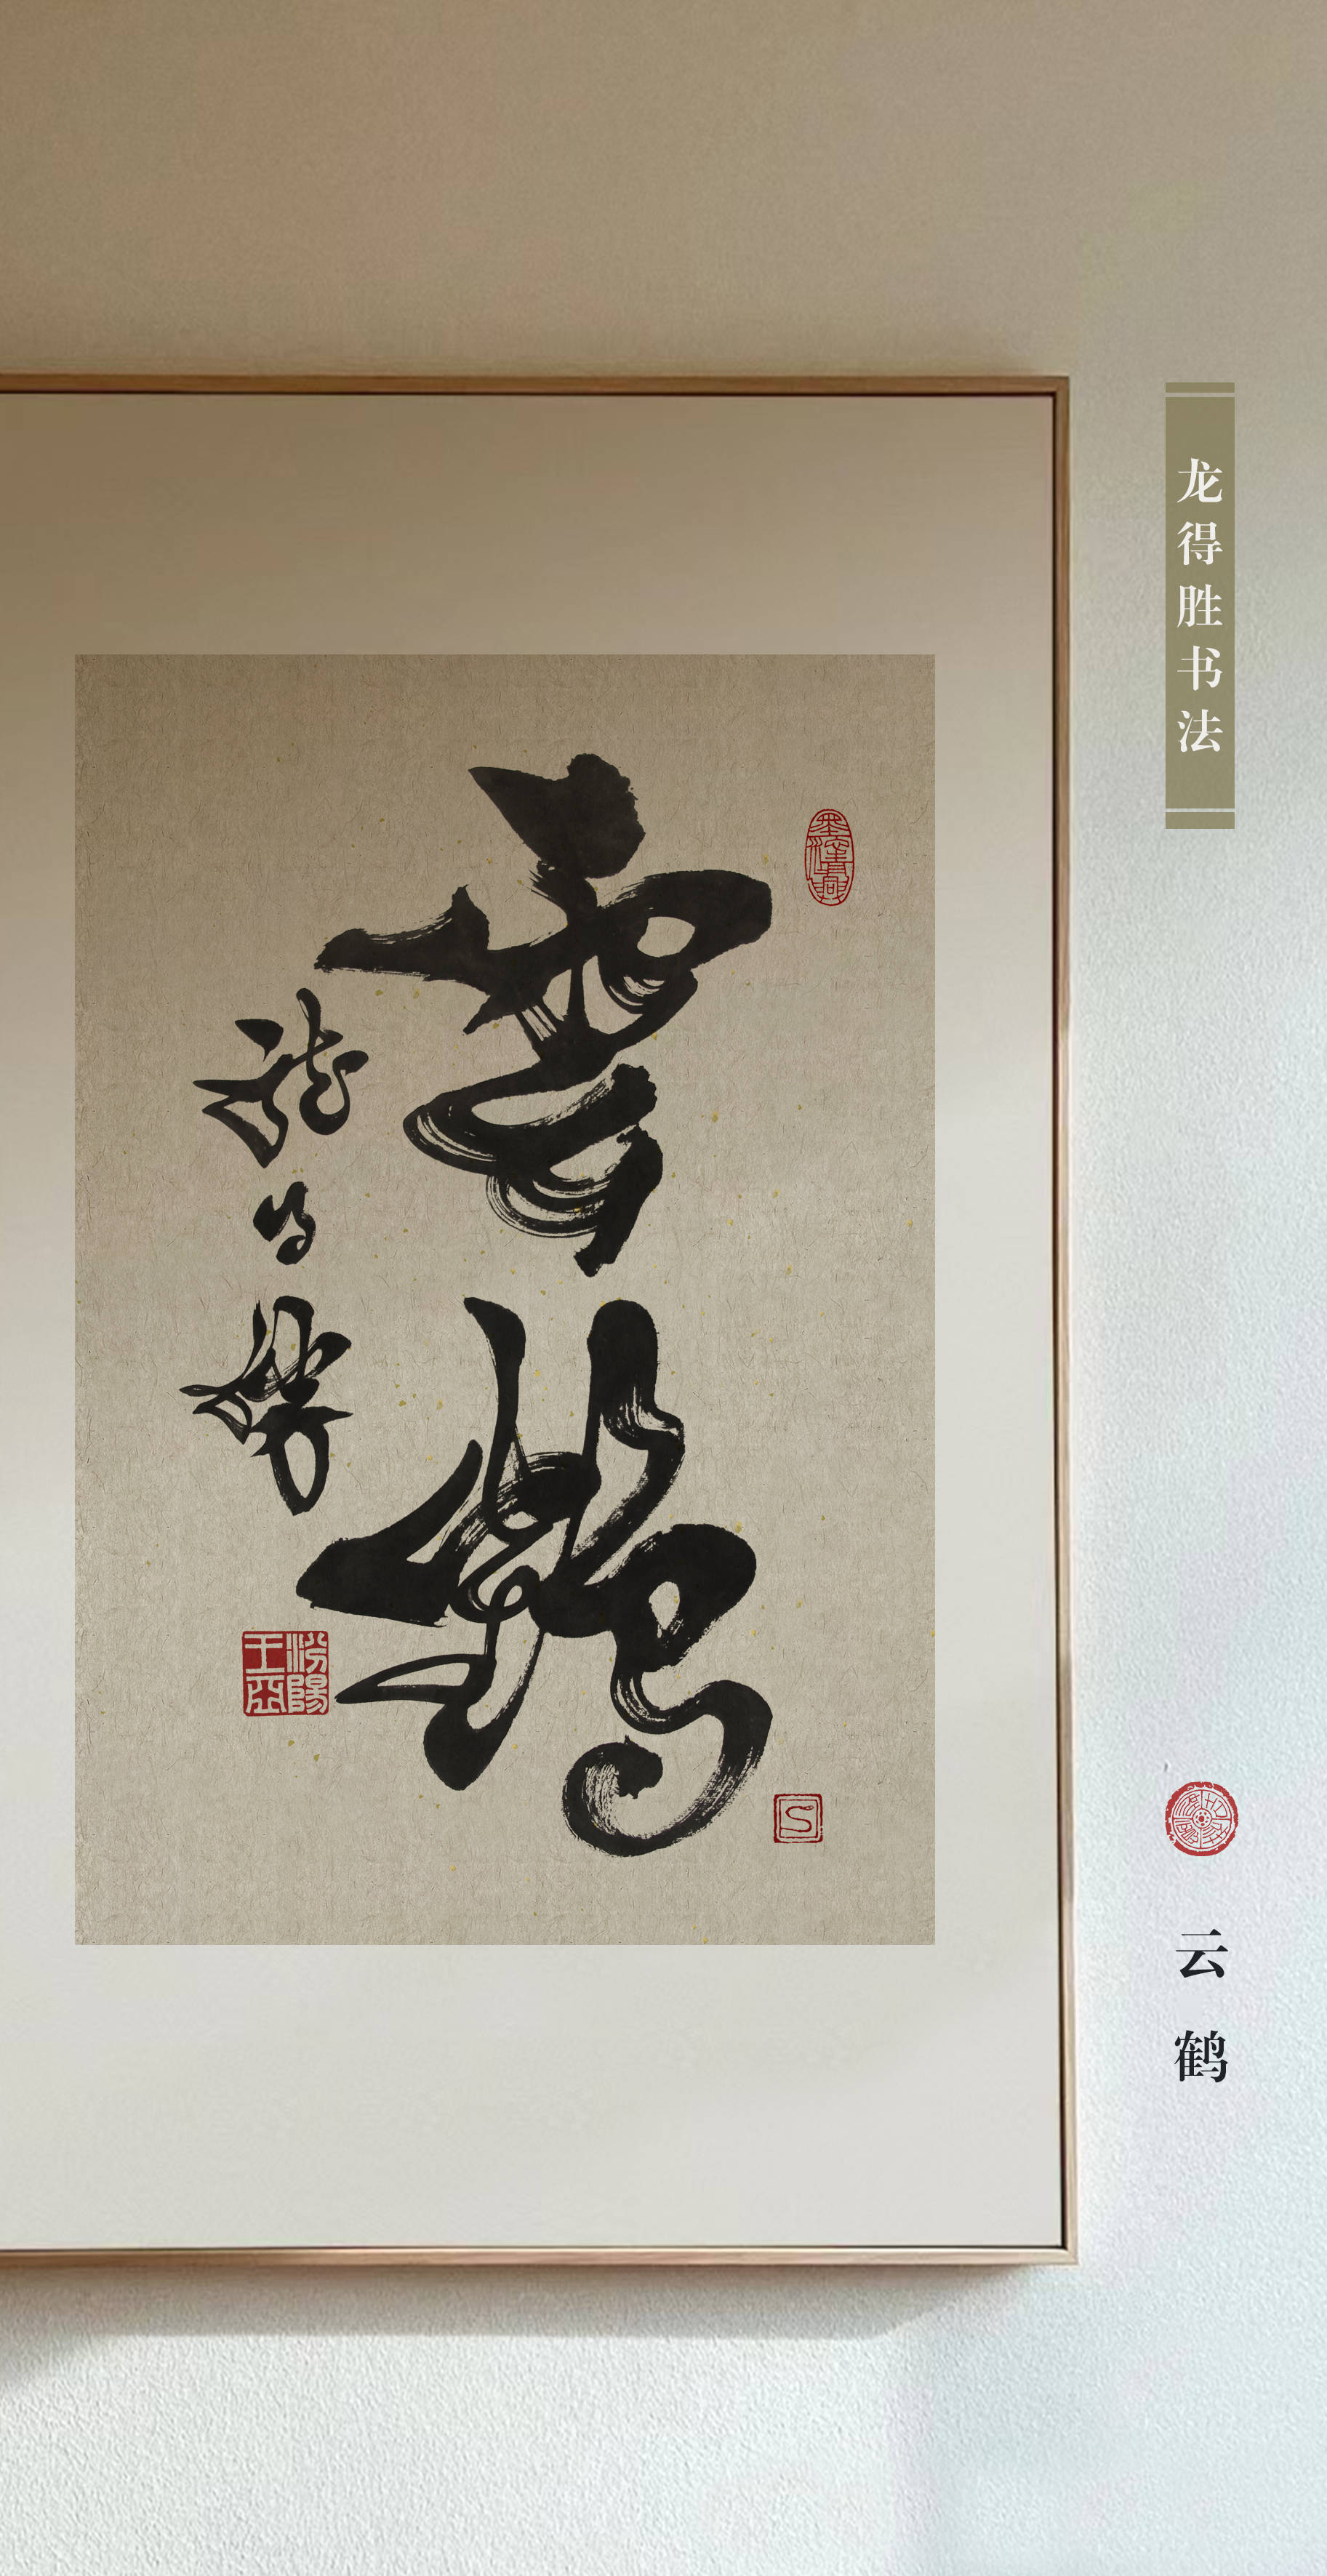 龙得胜书法
云鹤
雲鶴
龍得勝
汾陽
王裔